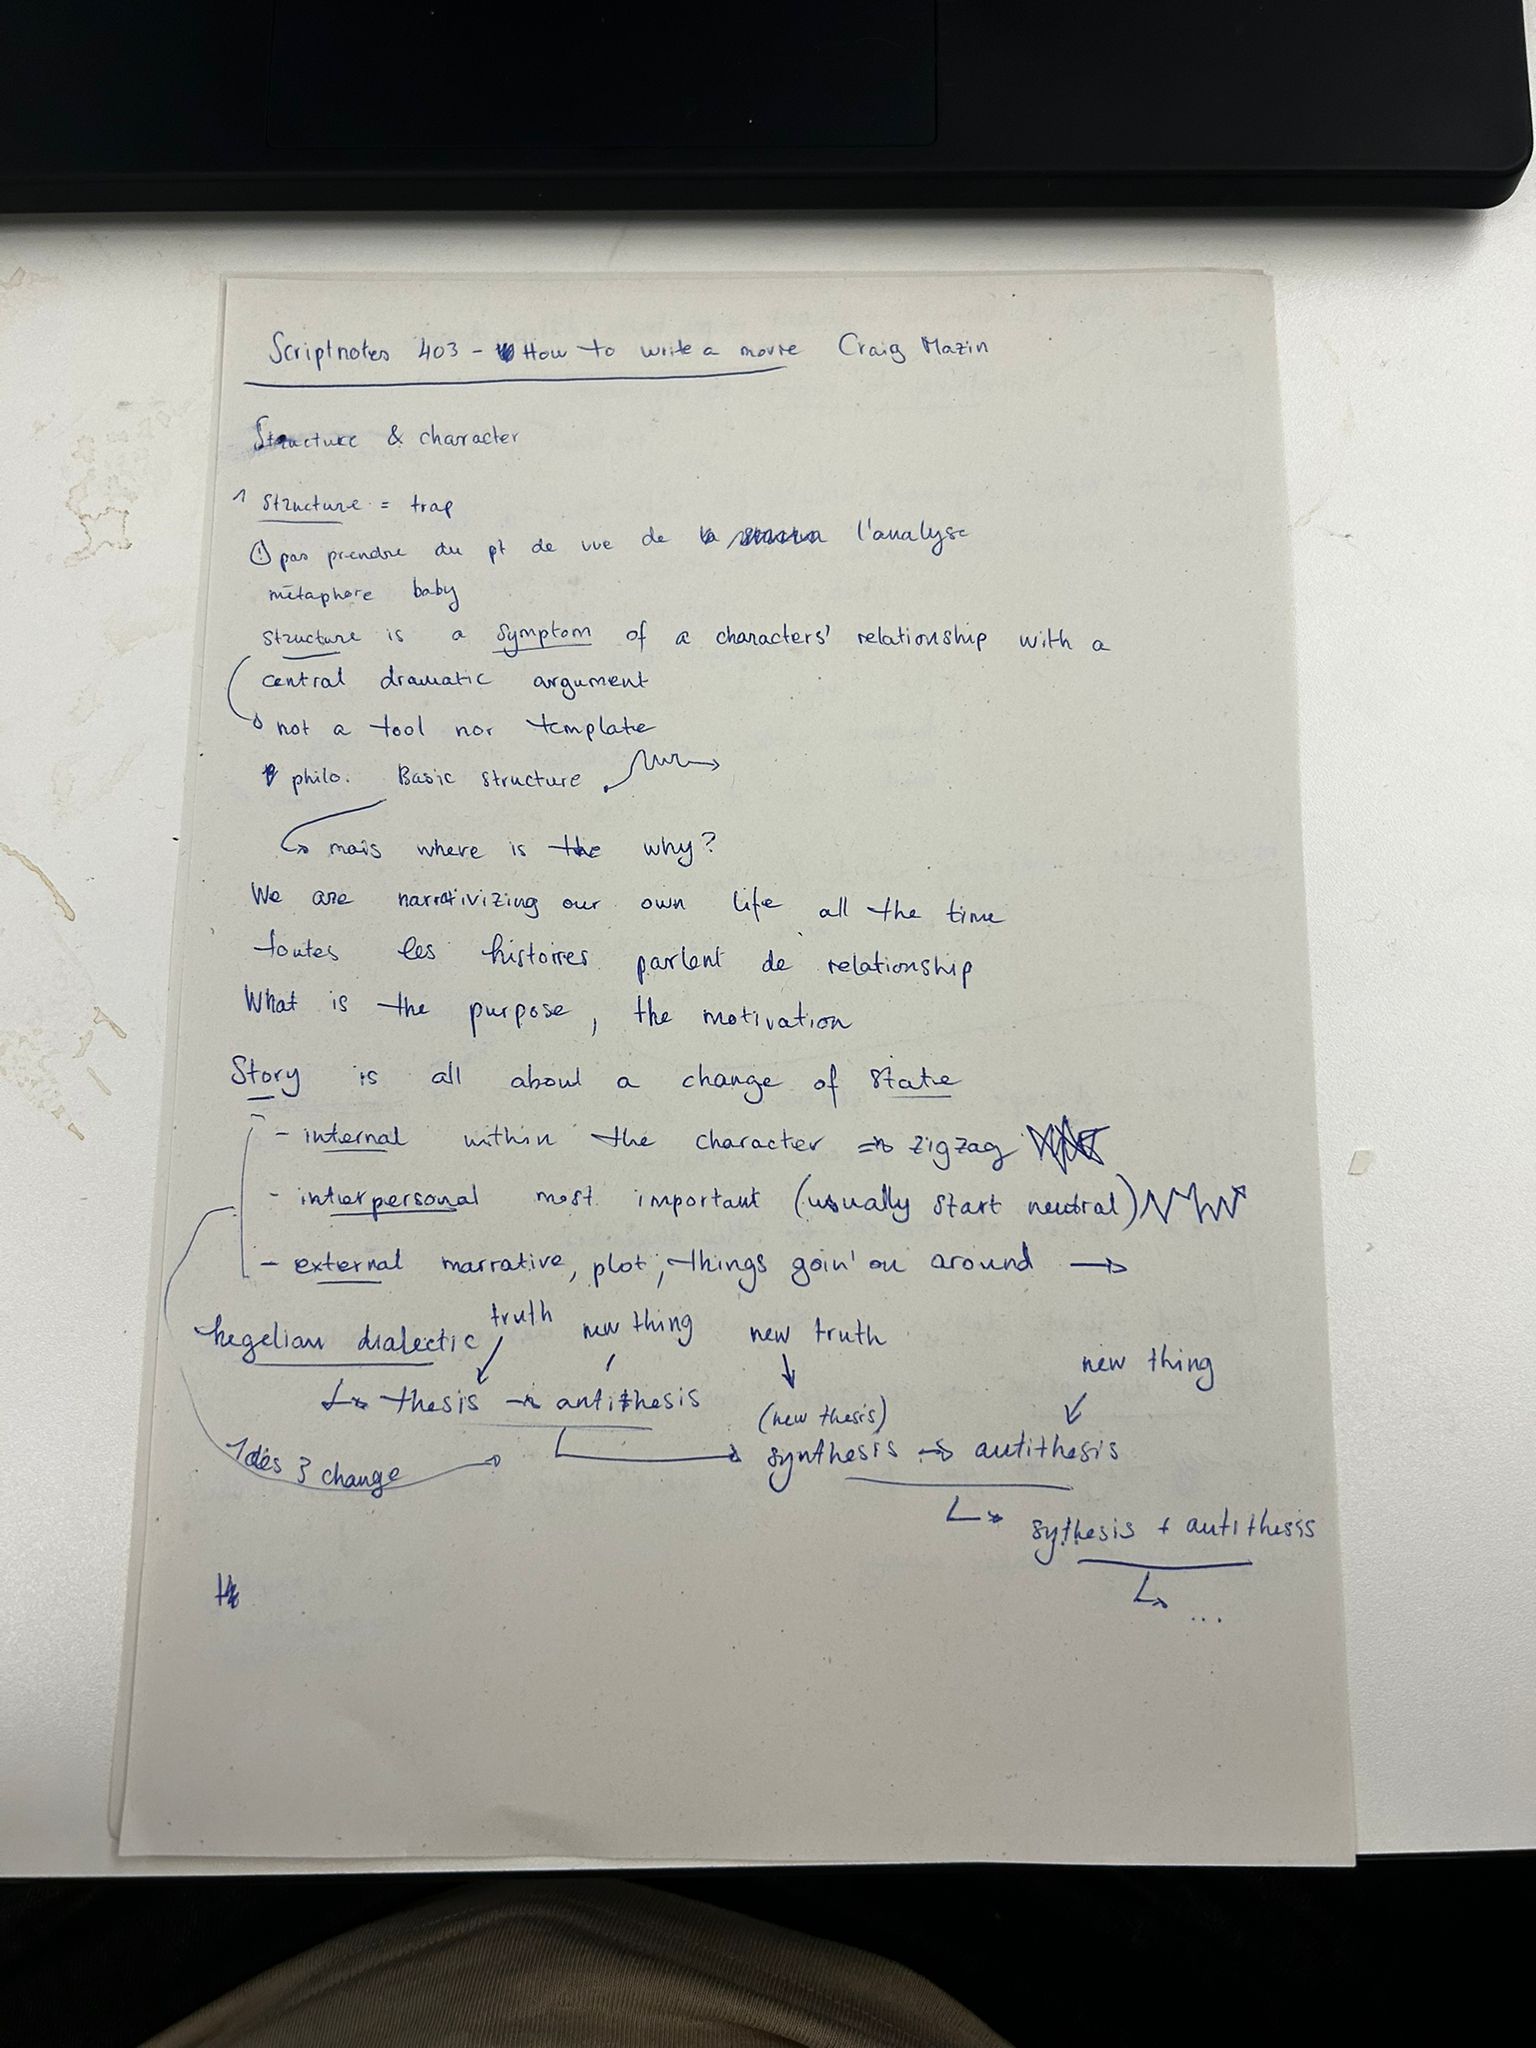 Scriptnotes 403 - How to write a movie Craig Mazin
Structure & character
1 Structure = trap
! pas prendre du pt de vue de l'analyse
métaphore baby
Structure is a symptom of a characters' relationship with a
central dramatic argument
not a tool nor template
philo. Basic structure
mais where is the why?
We are narrativizing our own life all the time
toutes les histoires parlent de relationship
What is the purpose, the motivation
Story is all about a change of state
- internal within the character => zigzag
- interpersonal most important (usually start neutral)
- external narrative, plot, things goin' on around →
hegelian dialectic truth new thing new truth
new thing
↳ thesis → antithesis (new thesis)
synthesis → antithesis
1 des 3 change
↳ sythesis + antithesis
↳ ...